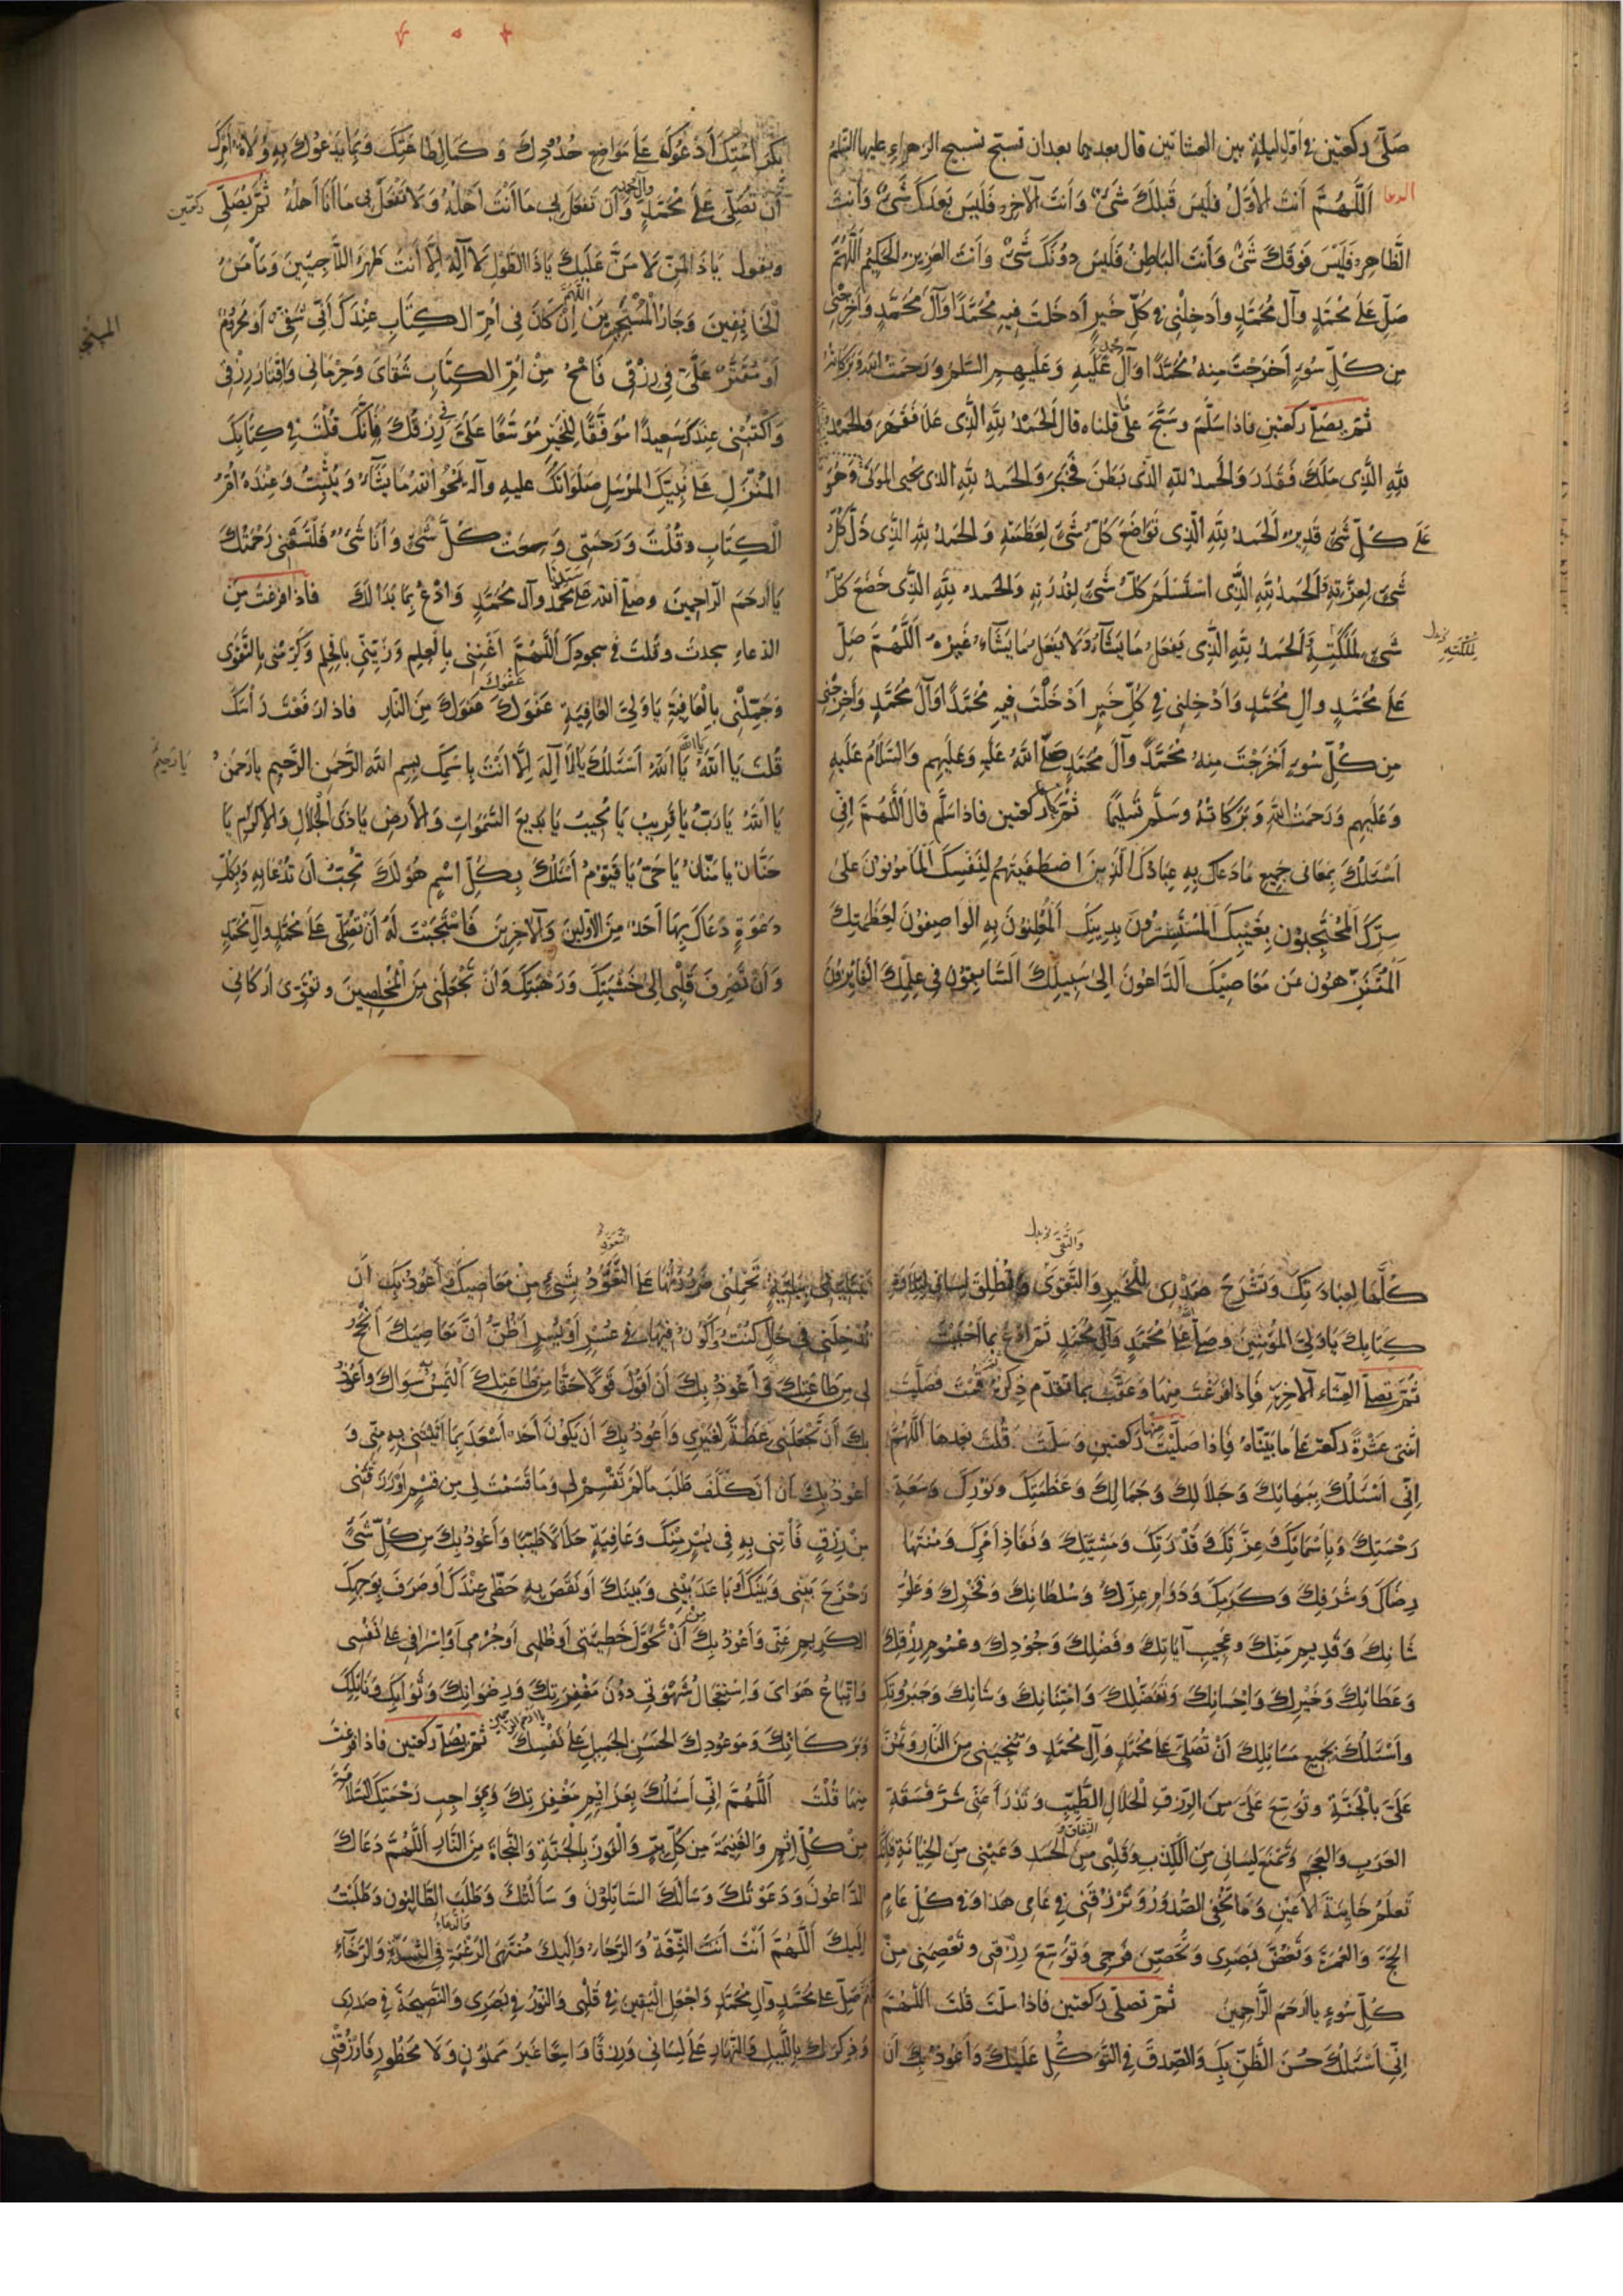 صَلّي ركعتين في أول ليلة بين العشائين قال بعدهما بعد ان تسبّح تسبيح الزهراء عليها السّلم
الدعا اَللّهُمَّ اَنْتَ الأوّلُ فَلَيسَ قَبلَكَ شَيْءٌ وَاَنتَ الآخِرُ فَلَيسَ بَعدَكَ شَيْءٌ وَاَنتَ
الظَّاهِرُ فَلَيْسَ فَوقَكَ شَيْءٌ وَاَنتَ البَاطِنُ فَلَيسَ دُونَكَ شَيْءٌ وَاَنتَ العَزِيزُ الحَكِيمُ اَللّهُمَّ
صَلِّ عَلَى مُحَمَّدٍ وَآلِ مُحَمَّدٍ وَاَدخِلْنِي في كُلِّ خَيرٍ اَدخَلتَ فِيهِ مُحَمَّدًا وَآلَ مُحَمَّدٍ وَاَخرِجْنِي
مِن كُلِّ سُوءٍ اَخرَجْتَ مِنهُ مُحَمَّدًا وَآلَ مُحَمَّدٍ عَلَيهِ وَعَلَيهِمِ السَّلمُ وَرَحمَتُ الله وَبَرَكَاتُهُ
ثمّ يصلّي ركعتين فاذا سلّم وسبَّحَ علَى ما قلناه قال اَلْحَمْدُ لِلّهِ الَّذِى عَلَا فَقَهَرَ وَالحَمْدُ
لِلّهِ الَّذِى مَلَكَ فَقَدَرَ وَالحَمدُ للهِ الَّذى بَطَنَ فَخَبَرَ وَالحَمدُ لِلّهِ الذى يُحيى المَوتَى وَهُوَ
عَلَى كُلِّ شَيْءٍ قَدِيرٌ اَلحَمدُ لِلّهِ الَّذِى تَوَاضَعَ كُلُّ شَيْءٍ لِعَظَمَتِهِ وَالحَمدُ لِلّهِ الَّذِى ذَلَّ كُلُّ
شَيْءٍ لِعِزَّتِهِ وَالحَمدُ لِلّهِ الَّذِى اسْتَسْلَمَ كُلُّ شَيْءٍ لِقُدْرَتِهِ وَالحَمدُ لِلّهِ الَّذِى خَضَعَ كُلُّ
شَيْءٍ لِمَلَكَتِهِ وَالحَمدُ لِلّهِ الَّذِى يَفعَلُ مَا يَشَآءُ وَلَا يَفعَلُ مَا يَشَآءُ غَيْرُهُ اَللّهُمَّ صَلِّ
لِمُلْكَتِهِ بدل
عَلَى مُحَمَّدٍ وآلِ مُحَمَّدٍ وَاَدْخِلنِي في كُلِّ خَيرٍ اَدْخَلْتَ فِيهِ مُحَمَّدًا وَآلَ مُحَمَّدٍ وَاَخرِجْنِي
مِن كُلِّ سُوءٍ اَخْرَجْتَ مِنهُ مُحَمَّدًا وَآلَ مُحَمَّدٍ صَلَّى اللهُ عَلَيهِ وَعَلَيهِم وَالسَّلَامُ عَلَيهِ
وَعَلَيهِم وَرَحمَتُ اللهِ وَبَرَكَاتُهُ وَسَلَّمَ تَسْلِيمًا ثمّ ركعتين فاذا سلّم قال اَللّهُمَّ اِنِّي
اَسْئَلُكَ بِمَعَانى جَمِيعِ مَا دَعَاكَ بِهِ عِبَادُكَ الَّذِينَ اصْطَفَيْتَهُم لِنَفْسِكَ اَلمَأمُونُونَ عَلَى
سِرِّكَ اَلمُحْتَجِبُونَ بِغَيْبِكَ اَلمُسْتَسِرُّونَ بِدِينِكَ اَلمُعْلِنُونَ بِهِ الوَاصِفُونَ لِعَظَمَتِكَ
اَلْمُتَنَزِّهُونَ عَن مَعَاصِيْكَ اَلدَّاعُونَ اِلَى سَبِيلِكَ السَّابِقُونَ فِي عِلمِكَ الفَائِزُونَ
بِكَرَامَتِكَ اَدْعُوكَ عَلَى مَوَاضِعِ حُدُودِكَ وَكَمَالِ طَاعَتِكَ وَبِمَا يَدْعُوكَ بِهِ وُلَاةُ اَمْرِكَ
اَن تُصَلِّيَ عَلَى مُحَمَّدٍ وآل محمد وَاَن تَفعَلَ بِي مَا اَنْتَ اَهْلُهُ وَلَا تَفْعَلْ بِي مَا اَنَا اَهلُهُ ثُمَّ يُصَلّى ركعتين
ويَقول يَا ذَا المَنِّ لَا مَنَّ عَلَيكَ يَا ذَا الطَّولِ لَا اِلهَ اِلَّا اَنتَ ظَهْرُ اللَّاجِينَ وَمَأمَنُ
الْخَائِفِينَ وَجَارُ الْمُسْتَجِيرِينَ اللّهمّ اِن كَانَ فِي اُمِّ الكِتَابِ عِنْدَكَ اَنِّي شَقِيٌّ اَو مَحرُومٌ
اَو مُقَتَّرٌ عَلَيَّ فِي رِزْقِي فَامْحُ مِنْ اُمِّ الكِتَابِ شَقَاىَ وَحِرْمَانِي وَاِقْتَارَ رِزْقِي
وَاكْتُبْنِي عِنْدَكَ سَعِيدًا مُوَفَّقًا لِلْخَيرِ مُوَسَّعًا عَلَيَّ في رِزْقُكَ فَاِنَّكَ قُلْتَ في كِتَابِكَ
المُنْزَلِ عَلَى نَبِيِّكَ المُرسَلِ صَلَوَاتُكَ عليهِ وآله يَمْحُوا اللهُ مَا يَشَآءُ وَيُثْبِتُ وَعِنْدَهُ اُمُّ
الْكِتَابِ وقُلْتَ وَرَحمَتِي وَسِعَتْ كُلَّ شَيْءٍ وَاَنَا شَيْءٌ فَلْتَسَعْنِي رَحْمَتُكَ
يَا اَرحَمَ الرّاحِمِينَ وصَلَّى اللهُ عَلَى سَيِّدِنَا مُحَمَّدٍ وَآلِ مُحَمَّدٍ وَادْعُ بِمَا بَدَا لَكَ فاذا فرغتَ مِنَ
الدُعاءِ سجدتَ وقُلتَ في سجودِكَ اَللّهُمَّ اَغْنِنِى بِالعِلمِ وَزَيِّنّي بِالحِلمِ وَكَرِّمنِى بِالتَّقْوَى
وَجَمِّلْنِى بِالْعَافِيَةِ يَا وَلِيَّ العَافِيَةِ عَفْوَكَ عَفْوَكَ عَفْوَكَ مِنَ النَّارِ فاذا رَفَعْتَ رَأسَكَ
قُلتَ يَا اَللهُ يَا اللهُ يَا اَللهُ اَسْئَلُكَ بِلَا اِلهَ اِلَّا اَنْتَ بِاسْمِكَ بِسمِ اللهِ الرّحمنِ الرَّحِيمِ يَا رَحمنُ يا رَحيمُ
يَا اَللهُ يَا رَبُّ يَا قَرِيبُ يَا مُجِيبُ يَا بَدِيعَ السَّموَاتِ وَالأرضِ يَا ذَى الْجَلَالِ وَالاِكْرَامِ يَا
حَنَّانُ يَا مَنَّانُ يَا حَيُّ يَا قَيّومُ اَسْئَلُكَ بِكُلِّ اسْمٍ هُوَ لَكَ تُحِبُّ اَن تُدْعَا بِهِ وَبِكُلِّ
دَعْوَةٍ دَعَاكَ بِهَا اَحَدٌ مِنَ الاَوَّلِينَ وَالآخِرِينَ فَاسْتَجَبْتَ لَهُ اَنْ تُصَلِّيَ عَلَى مُحَمَّدٍ وآلِ مُحَمَّدٍ
وَاَنْ تَصْرِفَ قَلْبِى اِلىَ خَشْيَتِكَ وَرَهْبَتِكَ وَاَنْ تَجْعَلَنِي مِنَ الْمُخْلِصِينَ وتقَوّى اَركَانِي
وَالتُّقى بدل
كُلَّهَا لِعِبَادَتِكَ وَتَشْرَحَ صَدْرِى لِلْخَيرِ وَالتَّقوَى وَتُطْلِقَ لِسَانِي لِتِلَاوَةِ
كِتَابِكَ يَا وَلِيَّ المُؤْمِنِينَ وصَلَّى الله عَلَى مُحَمَّدٍ وَآلِ مُحَمَّدٍ ثمّ ادْعُ بِمَا اَحْبَبْتَ
ثُمّ تصلّي العِشَاءَ الآخِرَةَ فَاِذَا فَرَغْتَ مِنهَا وَعَقَّبْتَ بِمَا تقدّم ذِكرُهُ قُمْتَ فَصَلَّيْتَ
اثْنَتى عَشْرَةَ رَكعَةً عَلَى مَا بَيَّنَّاهُ فَاِذَا صَلَّيْتَ منها رَكعتينِ وَسَلّمْتَ قُلتَ بَعدَهَا اَللّهُمَّ
اِنِّي اَسْئَلُكَ بِبَهَائِكَ وَجَلَالِكَ وَجَمَالِكَ وَعَظَمَتِكَ وَنُورِكَ وَسَعَةِ
رَحْمَتِكَ وَبِاَسْمَائِكَ وَعِزَّتِكَ وَقُدْرَتِكَ وَمَشِيَّتِكَ وَنَفَاذِ اَمْرِكَ وَمُنْتَهَا
رِضَاكَ وَشَرَفِكَ وَكَرَمِكَ وَدَوَامِ عِزِّكَ وَسُلْطَانِكَ وَفَخْرِكَ وَعُلُوِّ
شَانِكَ وَقَدِيمِ مَنِّكَ وعَجِيبِ آيَاتِكَ وفَضْلِكَ وَجُودِكَ وَعُمُومِ رِزْقِكَ
وَعَطَائِكَ وَخَيْرِكَ وَاِحْسَانِكَ وَتَفَضُّلِكَ وَامْتِنَانِكَ وَشَانِكَ وَجَبَرُوتِكَ
واَسْئَلُكَ بِجَمِيعِ مَسَائِلِكَ اَنْ تُصَلِّيَ عَلَى مُحَمَّدٍ وَآلِ مُحَمَّدٍ وَتُنْجِيَنِي مِنَ النَّارِ وَتَمُنَّ
عَلَيَّ بِالْجَنَّةِ وَتُوَسِّعَ عَلَيَّ مِنَ الرِّزْقِ الْحَلَالِ الطَّيِّبِ وَتَدْرَأَ عَنِّي شَرَّ فَسَقَةِ
العَرَبِ وَالعَجَمِ وَتَمْنَعَ لِسَانِي مِنَ الْكَذِبِ وَقَلْبِي مِنَ الْحَسَدِ وَعَيْنِي مِنَ الْخِيَانَةِ فَاِنَّكَ
تَعلَمُ خَائِنَةَ الاَعيُنِ وَمَا تُخْفِي الصُّدُورُ وَتَرْزُقَنِي فِي عَامِي هَذَا وَفِي كُلِّ عَامٍ
الحَجَّ وَالعُمْرَةَ وَتَغُضَّ بَصَرِي وَتُحَصِّنَ فَرْجِي وَتُوَسِّعَ رِزْقِي وتَعْصِمَنِي مِنْ
كُلِّ سُوءٍ يَا اَرحَمَ الرَّاحِمِينَ ثمّ تصلّى رَكعتين فاذا سلّمتَ قُلتَ اَللّهُمَّ
اِنِّي اَسْئَلُكَ حُسْنَ الظَّنِّ بِكَ وَالصِّدقَ فِي التَّوَكُّلِ عَلَيكَ وَاَعُوذُ بِكَ اَن
التَّعَوُّذِ
تَبْتَلِيَنِي بِبَلِيَّةٍ تَحْمِلُنِي ضَرُورَتُهَا عَلَى التَّعَوُّذِ بِشَيْءٍ مِنْ مَعَاصِيكَ وَاَعُوذُ بِكَ اَن
تُدْخِلَنِي فِي حَالٍ كُنْتُ وَاَكُونُ فِيهَا في عُسْرٍ اَو يُسْرٍ اَظُنُّ اَنَّ مَعَاصِيَكَ اَنْجَحُ
لِي مِن طَاعَتِكَ وَاَعُوذُ بِكَ اَن اَقُولَ قَولًا حَقًّا مِن طَاعَتِكَ اَلْتَمِسُ بِهِ سِوَاكَ وَاَعُوذُ
بِكَ اَن تَجْعَلَنِي عِظَةً لِغَيْرِي وَاَعُوذُ بِكَ اَن يَكُونَ اَحَدٌ اَسْعَدَ بِمَا آتَيْتَنِي بِهِ مِنِّي وَ
اَعُوذُ بِكَ اَن اَتَكَلَّفَ طَلَبَ مَا لَمْ تَقْسِمْ لِي وَمَا قَسَمْتَ لِي مِن قِسْمٍ اَو رَزَقْتَنِي
مِنْ رِزْقٍ فَاْتِنِي بِهِ فِي يُسْرٍ مِنْكَ وَعَافِيَةٍ حَلَالًا طَيِّبًا وَاَعُوذُ بِكَ مِن كُلِّ شَيْءٍ
زَحْزَحَ بَيْنِي وَبَيْنَكَ اَو بَاعَدَ بَيْنِي وَبَينَكَ اَو نَقَصَ بِهِ حَظِّي عِنْدَكَ اَو صَرَفَ بِوَجهِكَ
الكَرِيمِ عَنِّي وَاَعُوذُ بِكَ مِن اَنْ تَحُوْلَ خَطِيئَتِي اَو ظُلمِي اَو جُرمِي اَو اِسْرَافِي عَلَى نَفْسِي
وَاتِّبَاعُ هَوَاىَ وَاسْتِعْجَالُ شَهْوَتِي دُوْنَ مَغْفِرَتِكَ وَرِضْوَانِكَ وَثَوَابِكَ وَنَائِلِكَ
وَبَرَكَاتِكَ وَمَوعُودِكَ الحَسَنِ الجَمِيلِ عَلَى نَفْسِكَ يا ارحم الراحمين ثمّ يصلّي ركعتين فاذا فرغت
مِنهَا قُلْتَ اَللّهُمَّ اِنِّي اَسئَلُكَ بِعَزَائِمِ مَغْفِرَتِكَ وَبِوَاجِبِ رَحْمَتِكَ السَّلَامَةَ
مِنْ كُلِّ اِثمٍ وَالغَنِيمَةَ مِن كُلِّ بِرٍّ وَالْفَوزَ بِالْجَنَّةِ وَالنَّجَاةَ مِنَ النَّارِ اَللّهُمَّ دَعَاكَ
الدَّاعُونَ وَدَعَوتُكَ وَسَأَلَكَ السَّائِلُونَ وَسَأَلتُكَ وَطَلَبَ الطَّالِبُونَ وَطَلَبْتُ
اِلَيكَ اَللّهُمَّ اَنْتَ الثِّقَةُ وَالرَّجَاءُ وَاِلَيكَ مُنْتَهَى الرَّغْبَةِ وَالدُّعَاءُ فِي الشِّدَّةِ وَالرَّخَآءِ
اللهم صَلِّ عَلَى مُحَمَّدٍ وآلِ مُحَمَّدٍ وَاجْعَلِ الْيَقِينَ فِي قَلْبِي وَالنُّورَ في بَصَرِي وَالنَّصِيحَةَ فِي صَدْرِى
وَذِكرَكَ بِاللَّيلِ وَالنّهَارِ عَلَى لِسَانِي وَرِزْقًا وَاسِعًا غَيرَ مَمنُونٍ وَلَا مَحظُورٍ فَارْزُقْنِي